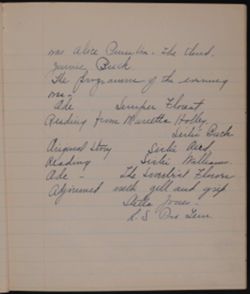 was Alice The Third.
Jennie Buck
The programme of the evening
was -
Ode Semper Floreat
Reading from Marietta Holley
Leslie Buck
Original Story Leslie Reed
Reading Leslie Williams
Ode - The Sweetest Flower
Adjourned with yell and grip
Stella Jones -
R.S. Pro Tem